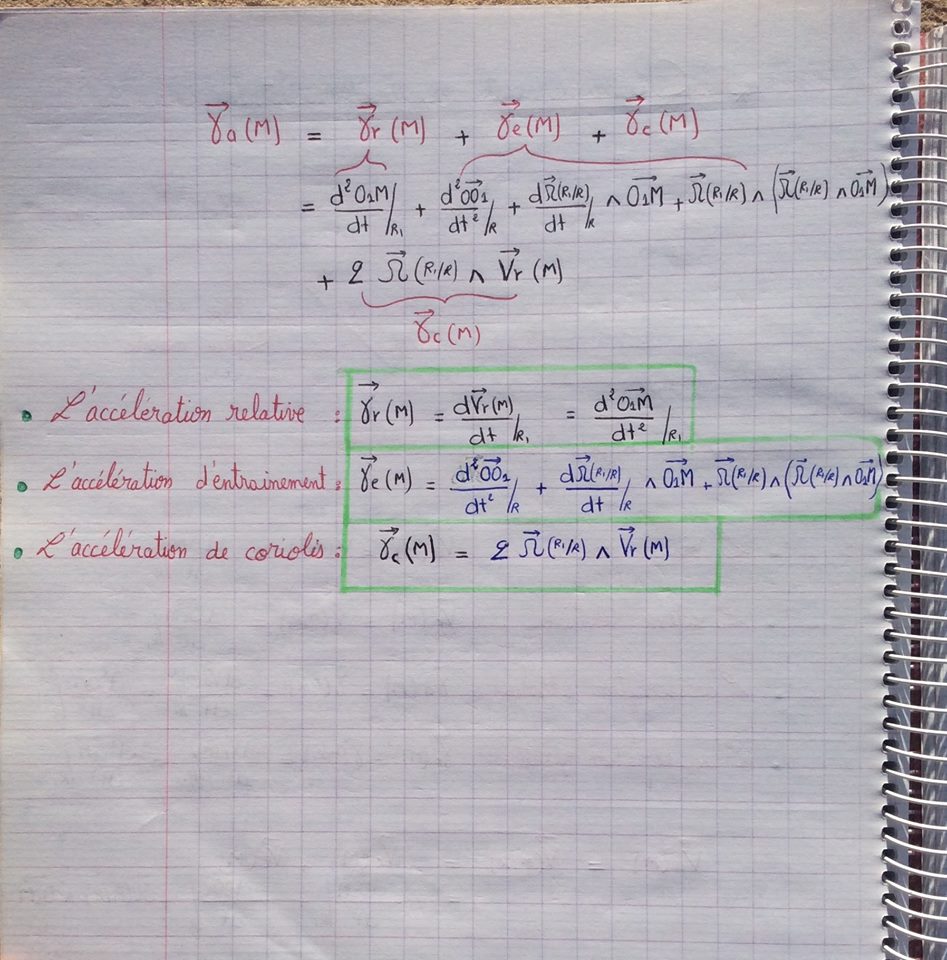 γ⃗a (M) = γ⃗r (M) + γ⃗e (M) + γ⃗c (M)
= d²O₁M/dt /R₁ + d²OO₁⃗/dt² /R + dΩ⃗(R₁/R)/dt /R ∧ O₁M⃗ + Ω⃗(R₁/R) ∧ (Ω⃗(R₁/R) ∧ O₁M⃗)
+ 2 Ω⃗(R₁/R) ∧ V⃗r (M)
γ⃗c (M)
• L'accélération relative : γ⃗r (M) = dV⃗r(M)/dt /R₁ = d²O₁M⃗/dt² /R₁
• L'accélération d'entrainement : γ⃗e (M) = d²OO₁⃗/dt² /R + dΩ⃗(R₁/R)/dt /R ∧ O₁M⃗ + Ω⃗(R₁/R) ∧ (Ω⃗(R₁/R) ∧ O₁M⃗)
• L'accélération de coriolis : γ⃗c (M) = 2 Ω⃗(R₁/R) ∧ V⃗r (M)